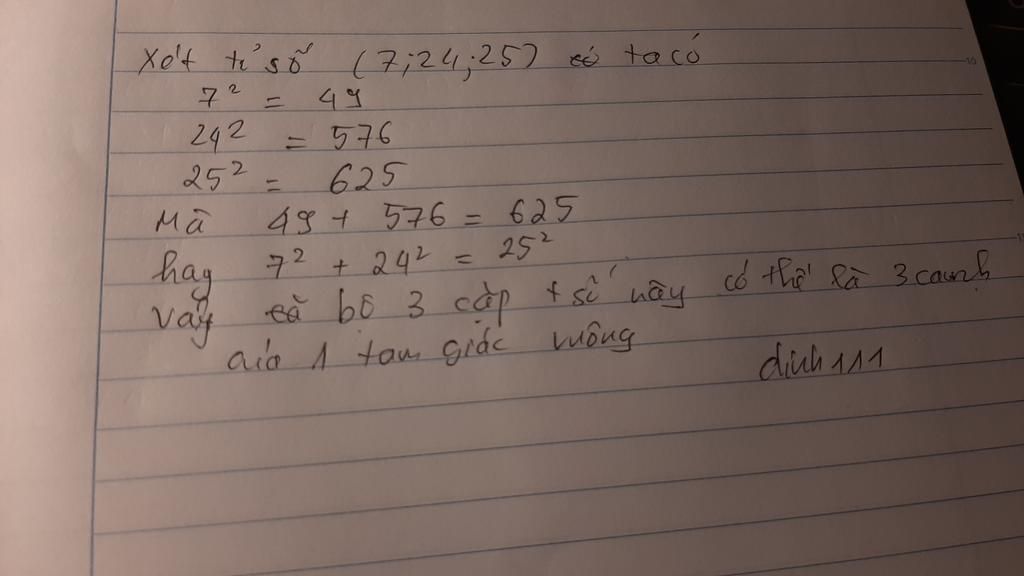 Xét tỉ số (7;24;25) có ta có
7² = 49
24² = 576
25² = 625
Mà 49 + 576 = 625
hay 7² + 24² = 25²
Vậy bộ 3 cặp số này có thể là 3 cạnh
của 1 tam giác vuông
dinh111